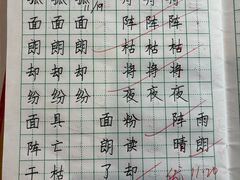 孤 孤 孤 将 将 将
面 面 面 阵 阵 阵
朗 朗 朗 枯 枯 枯
却 却 却 将 将 将
纷 纷 纷 夜 夜 夜
面 具 面 粉 阵 雨
阵 亡 朗 读 晴 朗
干 枯 了 却
11.20